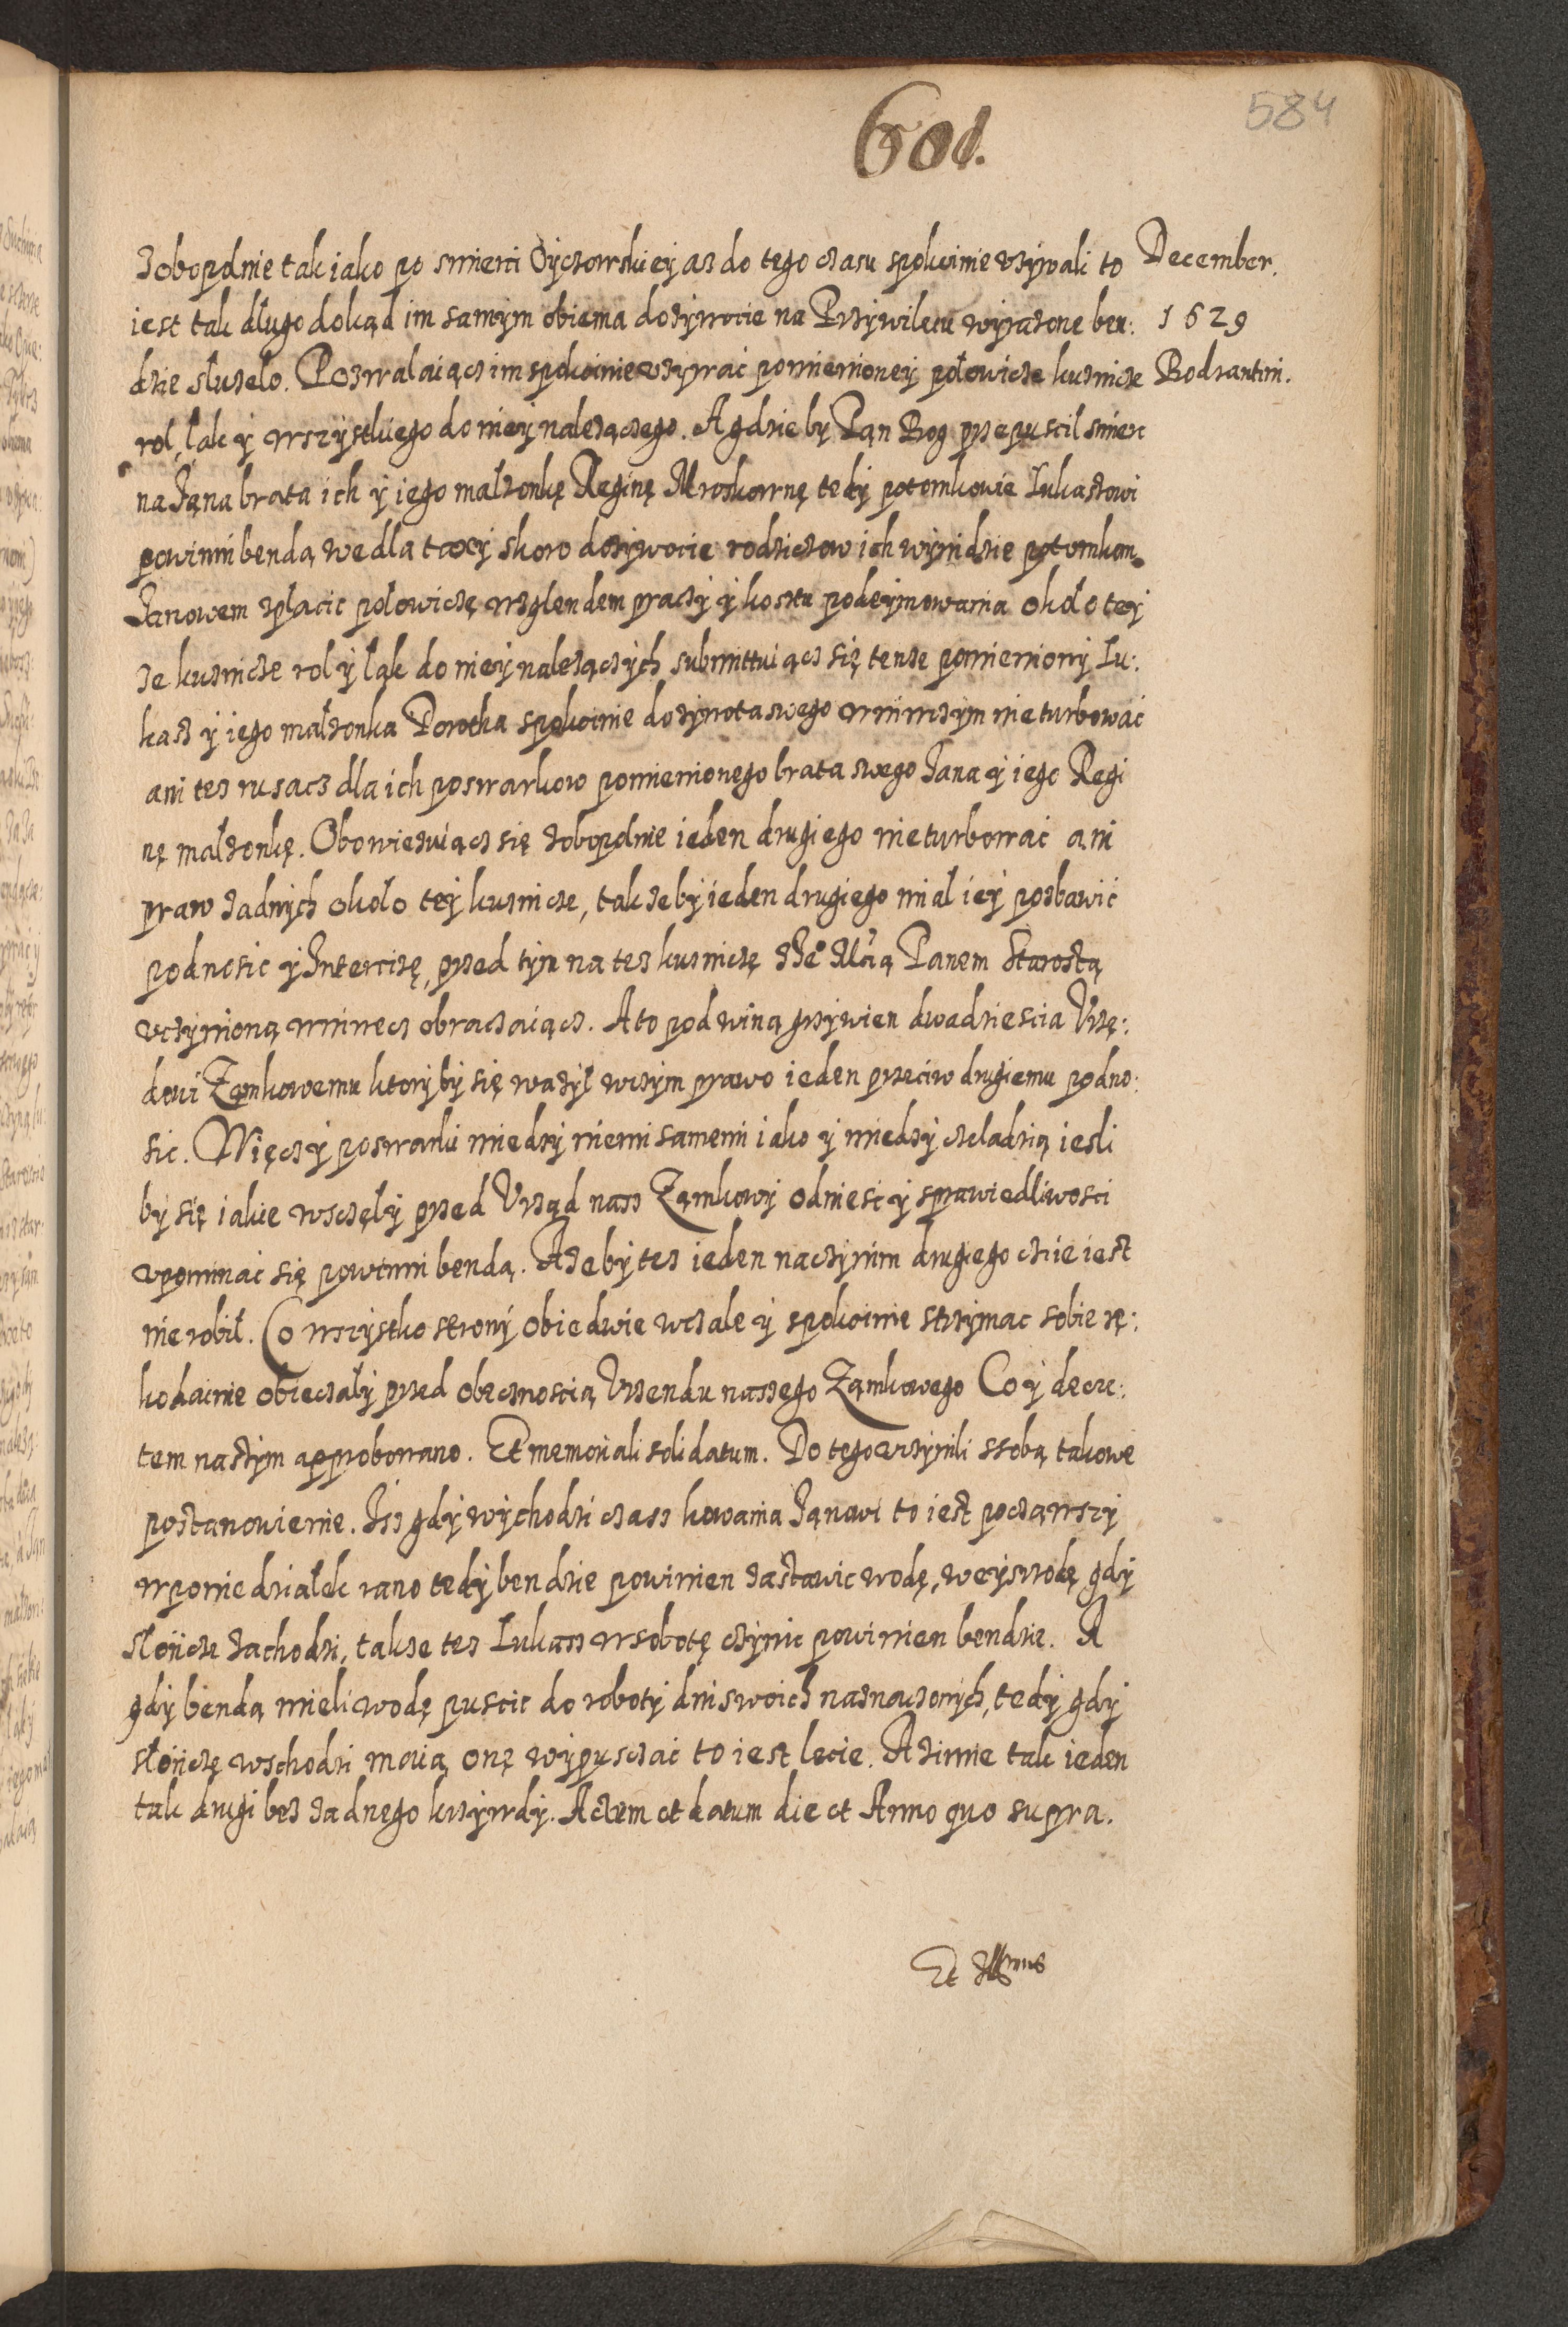 584
601.
December.
1629
Bodzantini.
Zobopolnie tak iako po smierci Oyczowskiey az do tego czasu spokoinie vzywali to
iest tak długo dokąd im samym obiema dozywocie na Przywileiu wyrazone ben:
dzie słuzeło. Pozwalaiącz im spokoinie vzywac pomienioney połowicze kuznicze
rol, lak y wszystkiego do niey nalezączego. A gdzie by Pąn Bog przepuscil smierc
na Jąna brata ich y iego małzonkę Reginę Mroskownę tedy potomkowie Lukaszowi
powinni bendą wedla taxy skoro dozywocie rodziczow ich wynidzie potomkom
Janowem zpłacic polowiczę wzglendem praczy y kosztu podeymowania około tey
ze kuznicze rol y ląk do niey nalezączych submittuiącz się tenze pomieniony Lu:
kasz y iego małzonka Dorotka spokoinie dozywota swego w niwczym nie turbowac
ani tez rusacz dla ich poswarkow pomienionego brata swego Jana y iego Regi
nę małzonkę. Obowięzuiącz się zobopolnie ieden drugiego nie turbowac ani
praw zadnych około tey kuznicze, tak zeby ieden drugiego mial iey pozbawić
podnosic y Intercizę, przed tym na tez kuzniczę z Je° Mcią Panem Starostą
vczynioną wniwecz obraczaiącz. A to pod winą grzywien dwadziescia Vrzę:
dowi Zamkowemu ktory by się wazył wczym prawo ieden przeciw drugiemu podno:
sic. Więcz y poswarki miedzy niemi samemi iako y miedzy czeladzią iesli
by się iakie wsczęły przed Vrząd nasz Zamkowy odniesc y sprawiedliwosci
vpominac się powinni bendą. A zeby tez ieden naczynim drugiego cznie iest
nie robił. Co wszystko strony obiedwie wczale y spokoinie strzymac sobie rę:
kodainie obieczały przed obecznoscią Vrzendu naszego Zamkowego Co y decre:
tem naszym approbowano. Et memoriali solidatum. Do tego vczynili ssobą takowe
postanowienie. Isz gdy wychodzi czasz kowania Janowi to iest począwszy
w poniedziałek rano tedy bendzie powinien zastawic wodę, we yszrodę gdy
słoncze zachodzi, takze tez Lukasz wsobotę czynic powinien bendzie. A
gdy bendą mieli wodę puscic do roboty dni swoich naznaczonych, tedy gdy
słonczę wschodzi maią onę wypusczac to iest lecie. A zimie tak ieden
tak drugi bez zadnego krzywdy. Actum et datum die et Anno quo supra.
Et Illmus